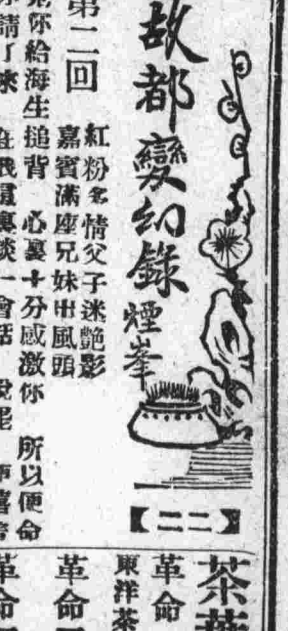 故都變幻錄
煙峯
【二二】
第二回
紅粉多情父子迷艷影
嘉賓滿座兄妹出風頭
你給海生搥背 心裏十分感激你 所以便命
請了來
談一會話
茶
革命
東洋茶
革命
革命